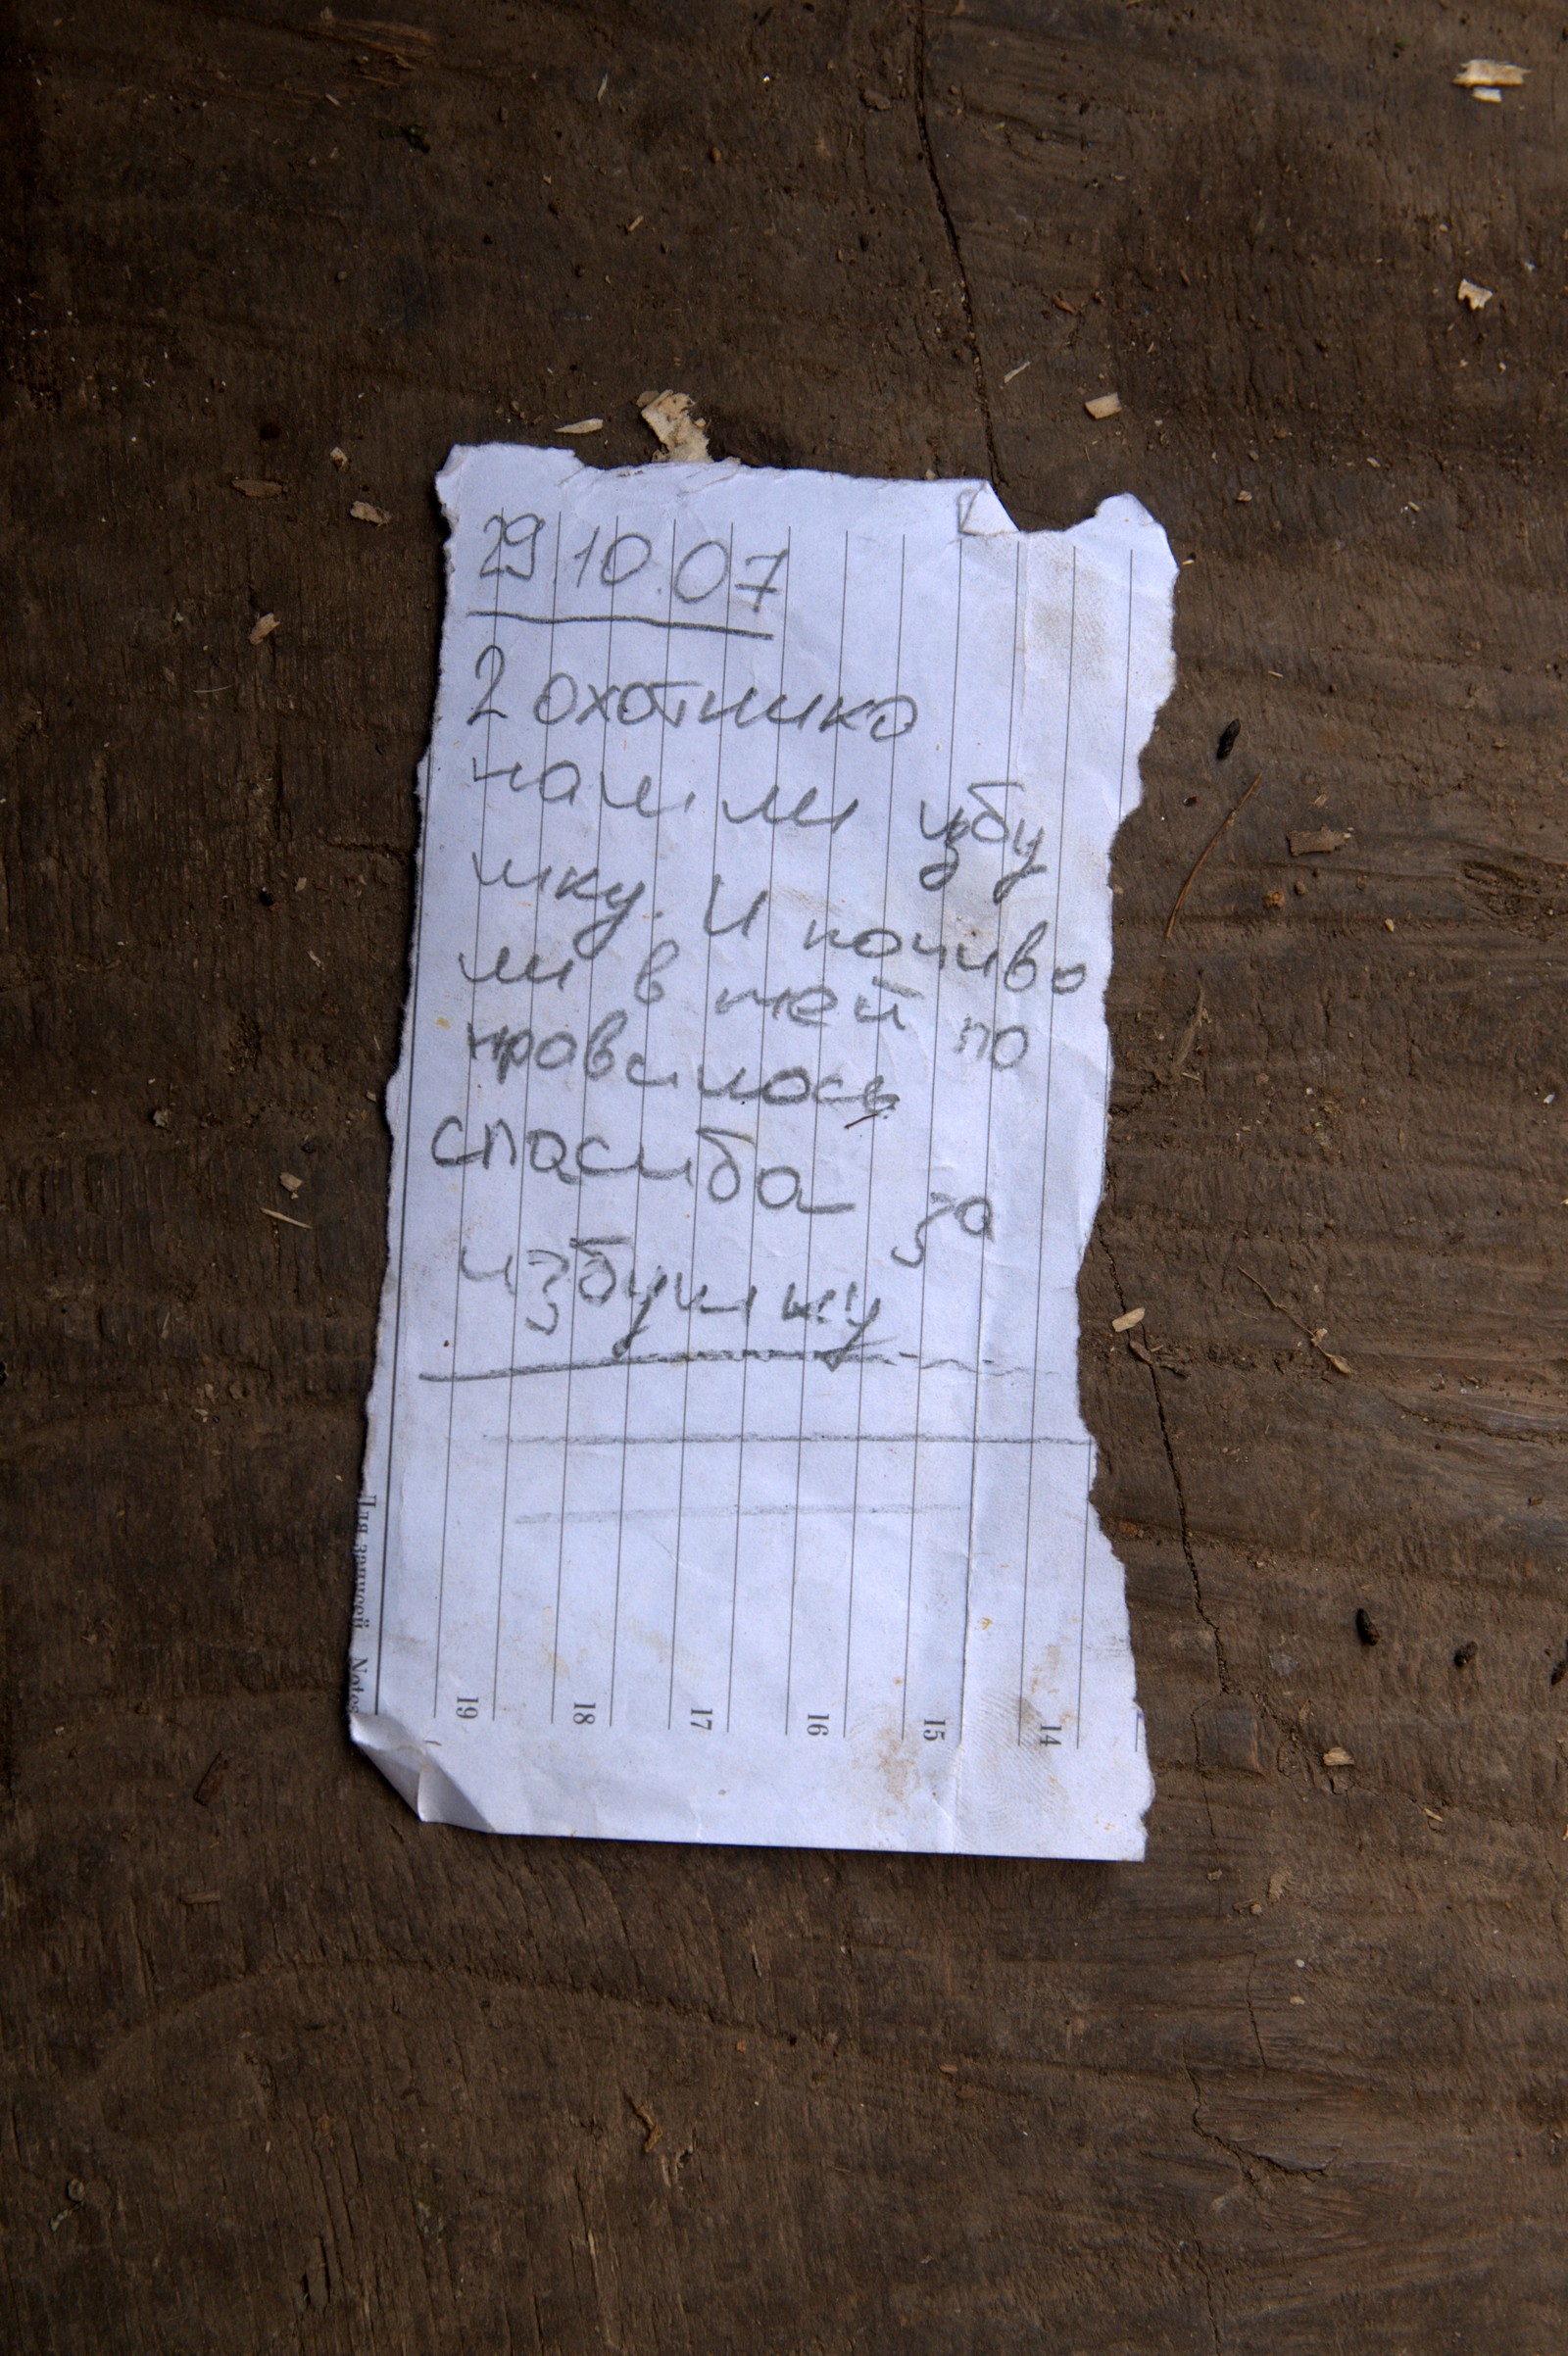 29.10.07
2 охотника
нашли избу
шку. И почива
ли в ней по
нравилось
спасиба за
избушку
Для записей Notes
19
18
17
16
15
14